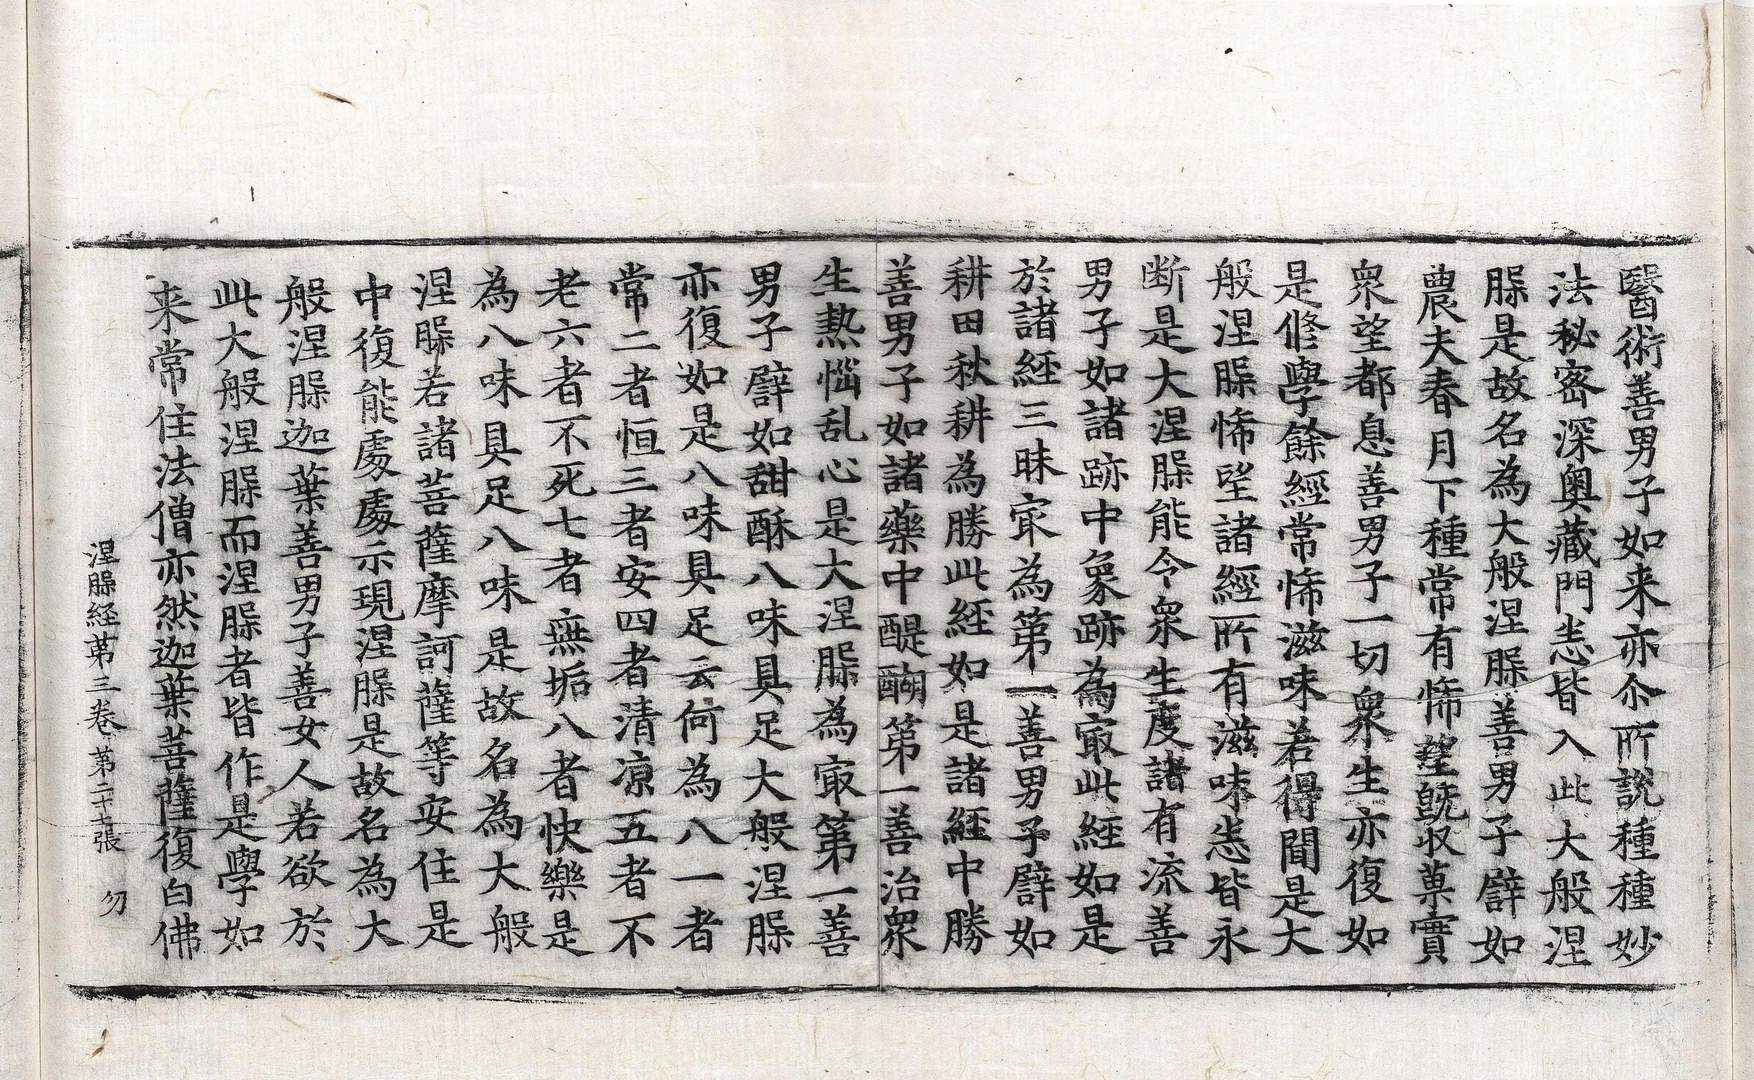 醫術善男子如来亦尒所說種種妙
法秘密深奧藏門悉皆入此大般涅
槃是故名為大般涅槃善男子譬如
農夫春月下種常有悕望既収菓實
衆望都息善男子一切衆生亦復如
是修學餘經常悕滋味若得聞是大
般涅槃悕望諸經所有滋味悉皆永
断是大涅槃能令衆生度諸有流善
男子如諸跡中象跡為㝡此經如是
於諸經三昧㝡為第一善男子譬如
耕田秋耕為勝此經如是諸經中勝
善男子如諸藥中醍醐第一善治衆
生熱惱乱心是大涅槃為㝡第一善
男子譬如甜酥八味具足大般涅槃
亦復如是八味具足云何為八一者
常二者恒三者安四者清涼五者不
老六者不死七者無垢八者快樂是
為八味具足八味是故名為大般
涅槃若諸菩薩摩訶薩等安住是
中復能處處示現涅槃是故名為大
般涅槃迦葉善男子善女人若欲於
此大般涅槃而涅槃者皆作是學如
来常住法僧亦然迦葉菩薩復白佛
涅槃経苐三卷 第二十七張 勿